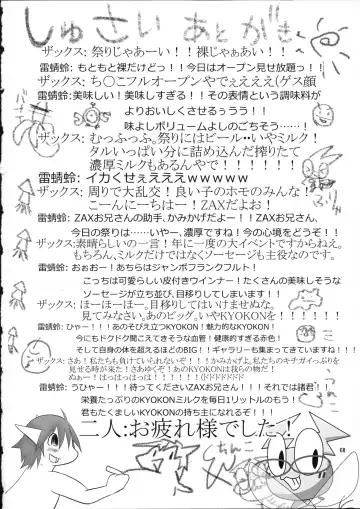 しゅさい あとがき
ザックス: 祭りじゃあーい！！裸じゃぁあい！！
雷蜻蛉: もともと裸だけどっ！！今日はオープン見せ放題っ！！
ザックス: ち〇こフルオープンやでぇえええ(ゲス顔
雷蜻蛉: 美味しい！美味しすぎる！！その表情という調味料が
よりおいしくさせるぅうう！！
味よしボリュームよしのごちそう…！！
ザックス: むっふっふ。祭りにはビール・・いやミルク！
タルいっぱい分に詰め込んだ搾りたて
濃厚ミルクもあるんやで！！！！！！
雷蜻蛉: イカくせぇえええｗｗｗｗｗ
ザックス: 周りで大乱交！良い子のホモのみんな！
こーんにーちはー！ZAXだよお！
雷蜻蛉: ZAXお兄さんの助手、かみかげだよー！！ZAXお兄さん、
今日の祭りは……いやー、濃厚ですね！今の心境をどうぞ！！
ザックス: 素晴らしいの一言！年に一度の大イベントですからねえ。
もちろん、ミルクだけではなくソーセージも主役なのです。
雷蜻蛉: おぉおー！あちらはジャンボフランクフルト！
こっちは可愛らしい皮付きウインナー！たくさんの美味しそうな
ソーセージが立ち並び、目移りしてしまいます！
ザックス: ほーほーほー。目移りしてはいけませぬな。
見てみなさい。あのビッグ。いやKYOKONを！！！！！！
雷蜻蛉: ひゃー！！！あのそびえ立つKYOKON！魅力的なKYOKON！
今にもドクドク聞こえてきそうな血管！健康的すぎる赤色！
そして自身の体を超えるほどのBIG！！ギャラリーも集まってきていますね！！！
ザックス: さあ！私たちも負けていられないぞ！！！かみかげよ。私たちのキチガイっぷりを
見せる時が来た！さあゆくぞ！あのKYOKONは我らの物だ！
ぬぁー！はっはっはっは！！！！！！(ドドドドドド
雷蜻蛉: うひゃー！！！待ってくださいZAXお兄さん！！！それでは諸君！！
栄養たっぷりのKYOKONミルクを毎日1リットルのもう！
君もたくましいKYOKONの持ち主になれるぞ！！！
二人:お疲れ様でした！
ちんこ